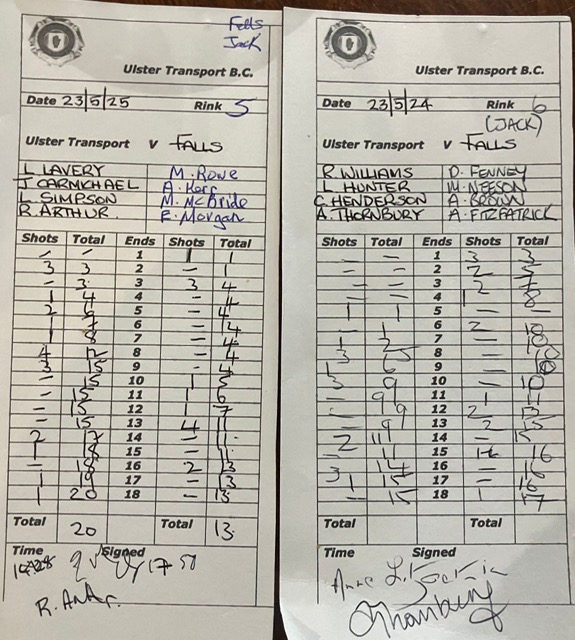 Falls
Jack
Ulster Transport B.C.
Date 23/5/25 Rink 5
Ulster Transport V FALLS
L LAVERY M. Rowe
J CARMICHAEL A. Kerr
L. SIMPSON M. McBride
R. ARTHUR E. Morgan
Shots Total Ends Shots Total
- - 1 1 1
3 3 2 - 1
- 3 3 3 4
1 4 4 - 4
2 6 5 - 4
1 7 6 - 4
1 8 7 - 4
4 12 8 - 4
3 15 9 - 4
- 15 10 1 5
- 15 11 1 6
- 15 12 1 7
- 15 13 4 11
2 17 14 - 11
1 18 15 - 11
- 18 16 2 13
1 19 17 - 13
1 20 18 - 13
Total 20 Total 13
Time Signed
17 50
R. Arthr.
Ulster Transport B.C.
Date 23/5/24 Rink 6
(JACK)
Ulster Transport V FALLS
R. WILLIAMS D. FENNEY
L HUNTER M. NEESON
C. HENDERSON A. BROWN
A. THORNBURY A. FITZPATRICK
Shots Total Ends Shots Total
- - 1 3 3
- - 2 2 5
- - 3 2 7
- - 4 1 8
1 1 5 - -
- 1 6 2 10
1 2 7 - 10
3 5 8 -
1 6 9 -
3 9 10 - 10
- 9 11 1 11
- 9 12 2 13
- 9 13 2 15
2 11 14 - 15
- 11 15 1 16
3 14 16 - 16
1 15 17 - 16
- 15 18 1 17
Total Total
Time Signed
Anne
Thornbury